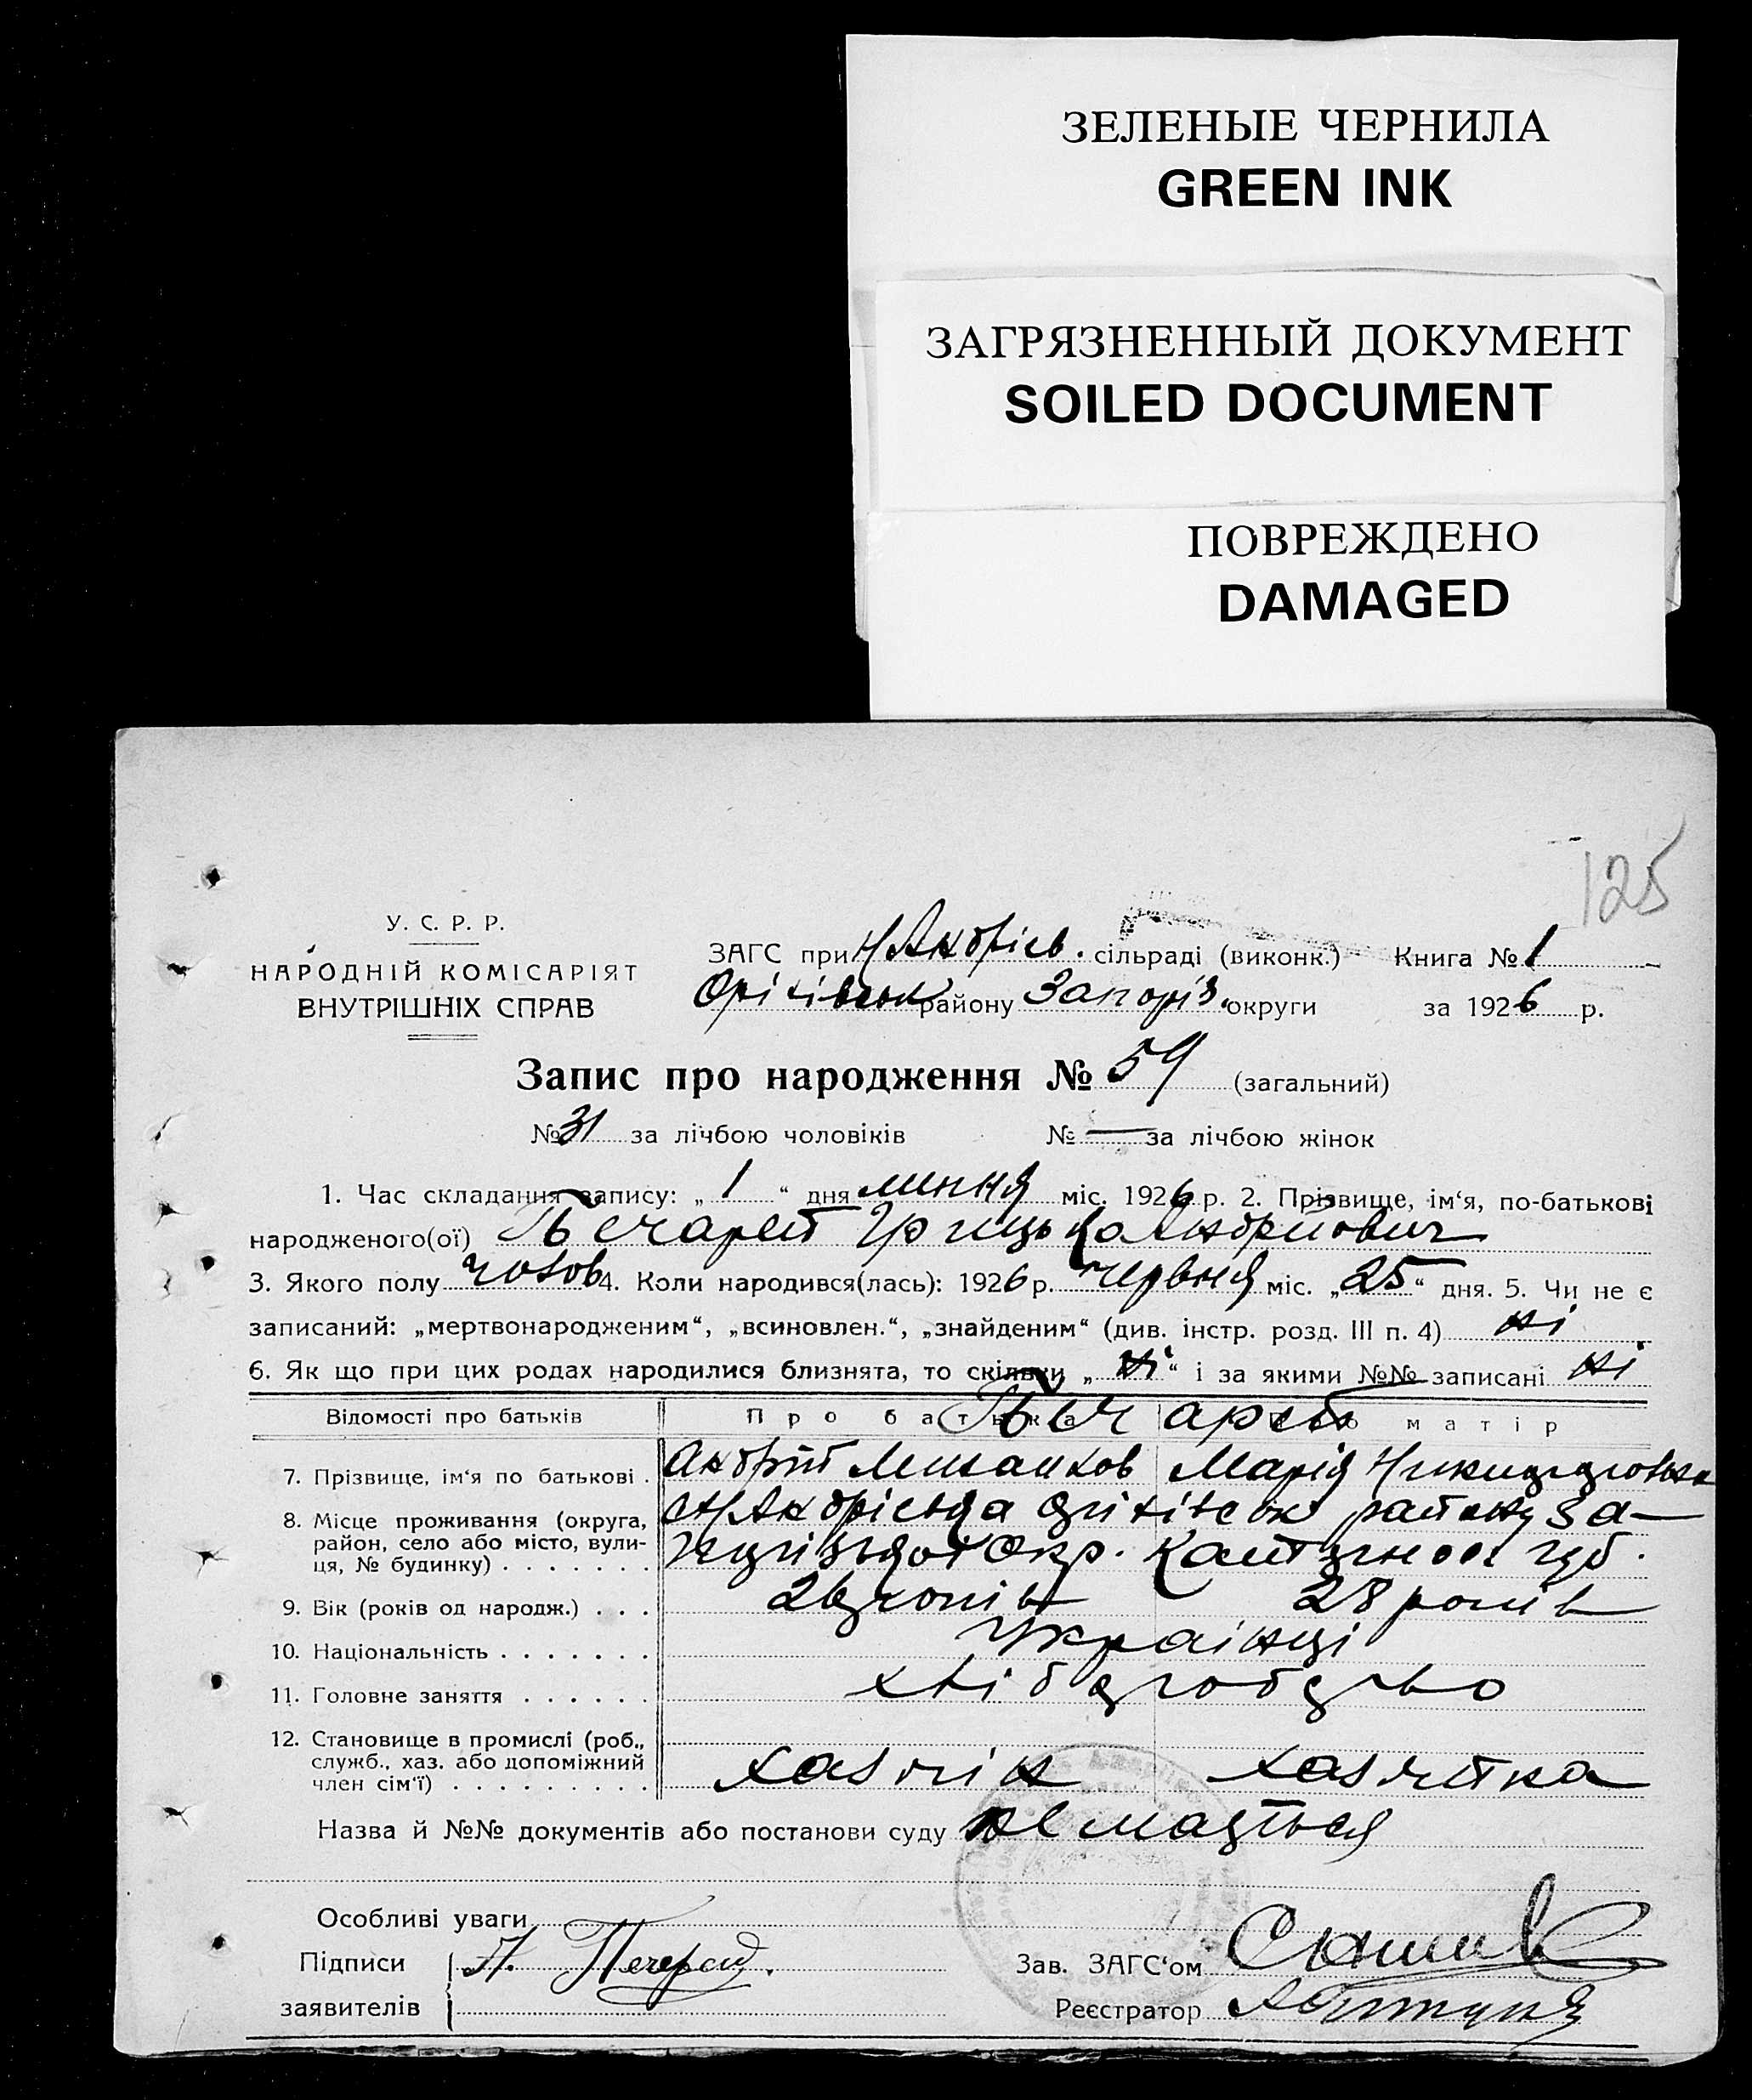 ЗЕЛЕНЫЕ ЧЕРНИЛА
GREEN INK
ЗАГРЯЗНЕННЫЙ ДОКУМЕНТ
SOILED DOCUMENT
ПОВРЕЖДЕНО
DAMAGED
125
У. С. Р. Р.
НАРОДНІЙ КОМІСАРІЯТ
ВНУТРІШНІХ СПРАВ
ЗАГС при Н Андріев. сільраді (виконк.) Книга № 1
Оріхівськ району Запоріз. округи за 1926 р.
Запис про народження № 59 (загальний)
№ 31 за лічбою чоловіків № — за лічбою жінок
1. Час складання запису: „ 1 “ дня липня міс. 1926 р. 2. Прізвище, ім‘я, по-батькові
народженого(ої) Грицько Андрійович
3. Якого полу чолов 4. Коли народився(лась): 1926 р. червня міс. „ 25 “ дня. 5. Чи не є
записаний: „мертвонародженим“, „всиновлен.“, „знайденим“ (див. інстр. розд. III п. 4) ні
6. Як що при цих родах народилися близнята, то скільки „ ні “ і за якими №№ записані ні
Відомості про батьків Про батька Про матір
7. Прізвище, ім‘я по батькові . Андрій Марія
8. Місце проживання (округа, район, село або місто, вулиця, № будинку) . . . . . . . Оріхівськ району За-
Окр. губ.
9. Вік (років од народж.) . . . 26 років 28 років
10. Національність . . . . . . . Українці
11. Головне заняття . . . . . . хліборобство
12. Становище в промислі (роб.,
служб., хаз. або допоміжний
член сім‘ї) . . . . . . . . . хазяїн хазяйка
Назва й №№ документів або постанови суду не мається
Особливі уваги
Підписи
заявителів
Зав. ЗАГС‘ом
Реєстратор